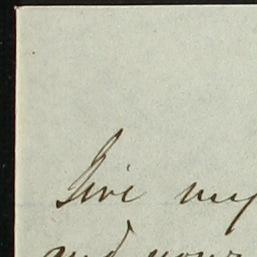 Give my
and your